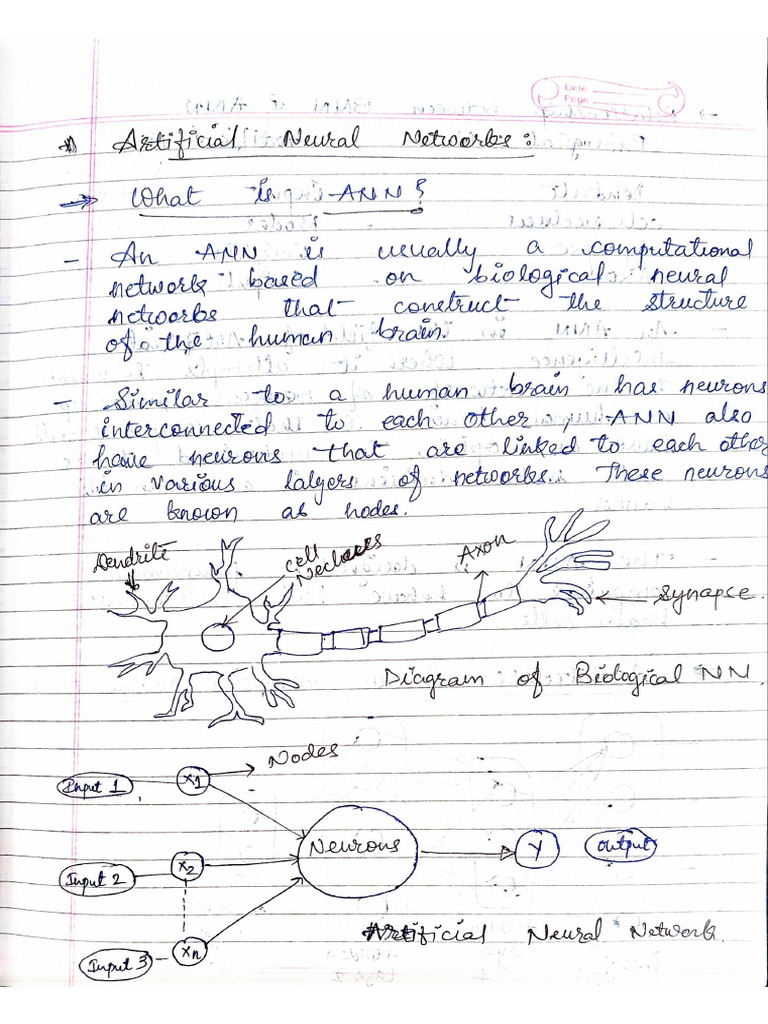 Date
Page
* Artificial Neural Networks:
→ What is ANN?
- An ANN is usually a computational
network based on biological neural
networks that construct the structure
of the human brain.
- Similar to a human brain has neurons
interconnected to each other, ANN also
have neurons that are linked to each other
in various lalyers of networks. These neurons
are known as nodes.
Dendrite
Cell
Axon
Synapse
Diagram of Biological NN.
Nodes
Input 1 x1
Neurons
Y output
Input 2 x2
Input 3 xn
Artificial Neural Network